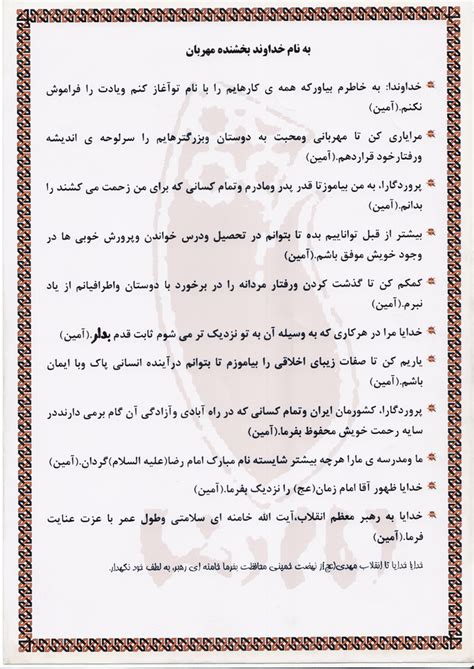 به نام خداوند بخشنده مهربان
خداوندا: به خاطرم بیاورکه همه ی کارهایم را با نام توآغاز کنم ویادت را فراموش
نکنم.(آمین)
مرایاری کن تا مهربانی ومحبت به دوستان وبزرگترهایم را سرلوحه ی اندیشه
ورفتارخود قراردهم.(آمین)
پروردگارا، به من بیاموزتا قدر پدر ومادرم وتمام کسانی که برای من زحمت می کشند را
بدانم.(آمین)
بیشتر از قبل تواناییم بده تا بتوانم در تحصیل ودرس خواندن وپرورش خوبی ها در
وجود خویش موفق باشم.(آمین)
کمکم کن تا گذشت کردن ورفتار مردانه را در برخورد با دوستان واطرافیانم از یاد
نبرم.(آمین)
خدایا مرا در هرکاری که به وسیله آن به تو نزدیک تر می شوم ثابت قدم بدار.(آمین)
یاریم کن تا صفات زیبای اخلاقی را بیاموزم تا بتوانم درآینده انسانی پاک وبا ایمان
باشم.(آمین)
پروردگارا، کشورمان ایران وتمام کسانی که در راه آبادی وآزادگی آن گام برمی دارنددر
سایه رحمت خویش محفوظ بفرما.(آمین)
ما ومدرسه ی مارا هرچه بیشتر شایسته نام مبارک امام رضا(علیه السلام)گردان.(آمین)
خدایا ظهور آقا امام زمان(عج) را نزدیک بفرما.(آمین)
خدایا به رهبر معظم انقلاب،آیت الله خامنه ای سلامتی وطول عمر با عزت عنایت
فرما.(آمین)
خدایا خدایا تا انقلاب مهدی(عج)از نهضت خمینی محافظت بفرما خامنه ای رهبر، به لطف خود نگهدار.